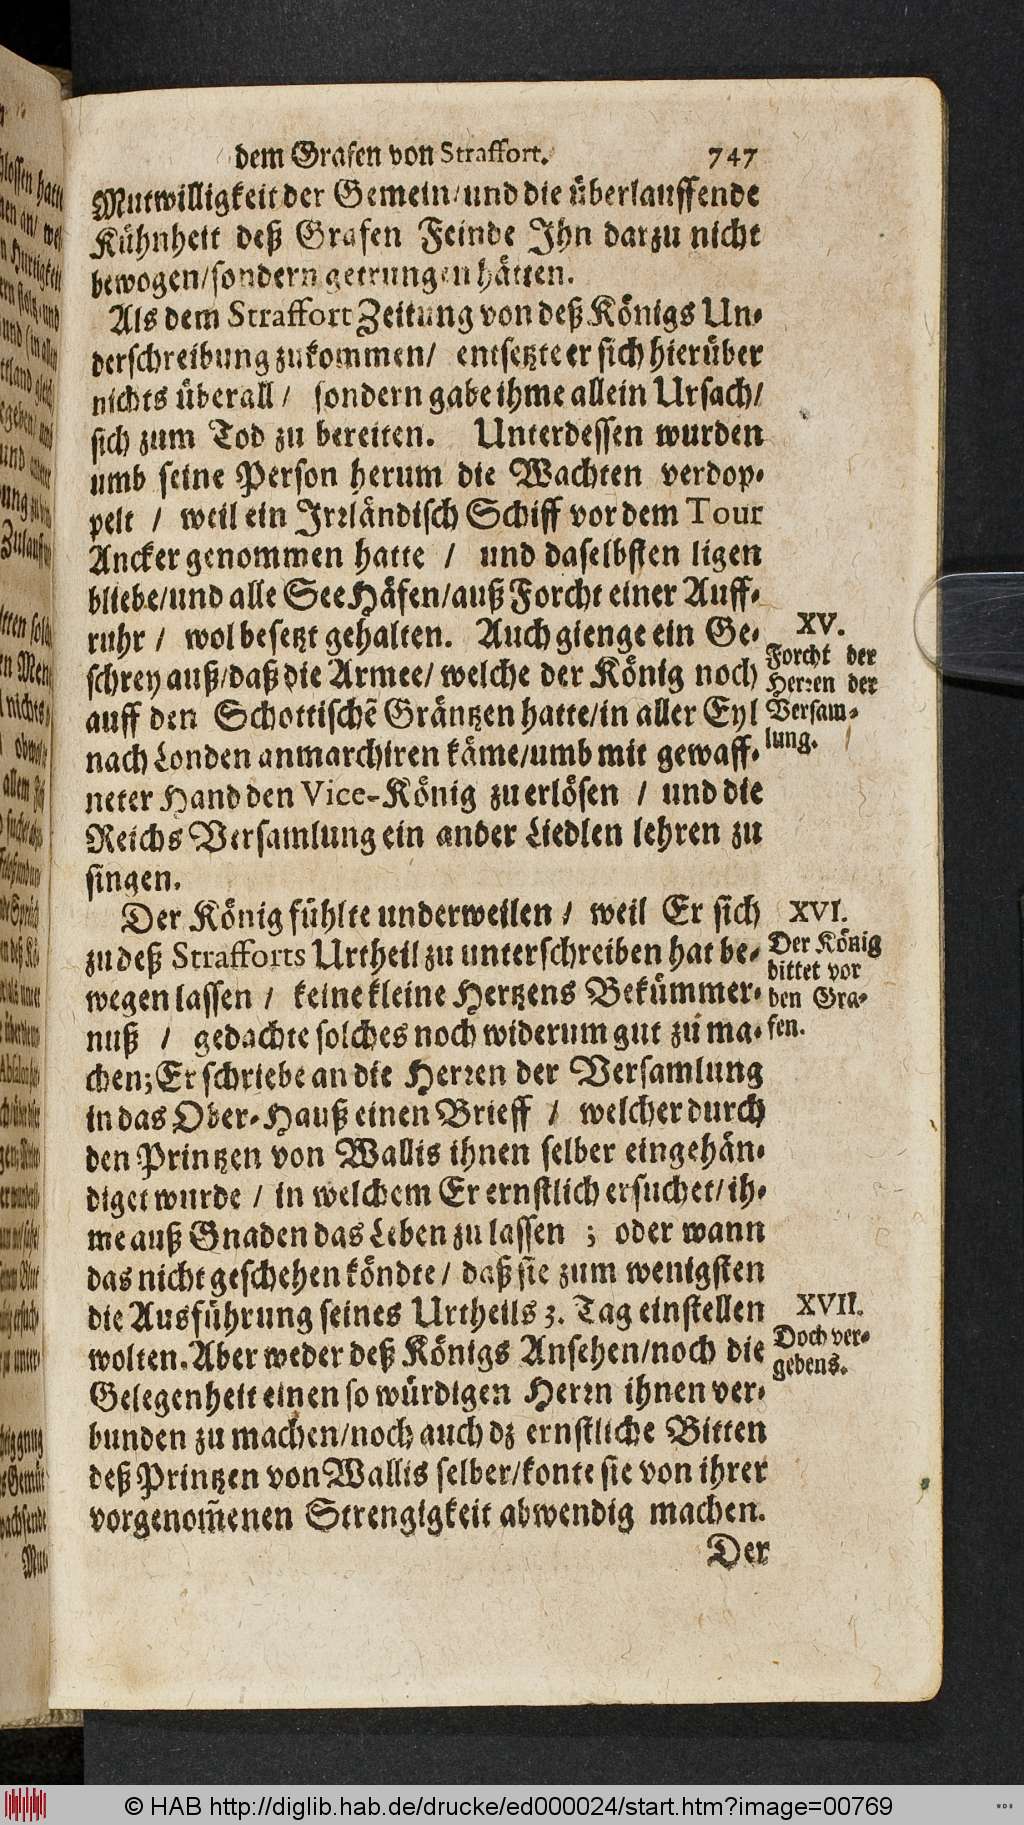 dem Grafen von Straffort. 747
Mutwilligkeit der Gemein/und die überlauffende
Kühnheit deß Grafen Feinde Ihn darzu nicht
bewogen/sondern getrungen hätten.
Als dem Straffort Zeitung von deß Königs Un-
derschreibung zukommen/ entsetzte er sich hierüber
nichts überall / sondern gabe ihme allein Ursach/
sich zum Tod zu bereiten. Unterdessen wurden
umb seine Person herum die Wachten verdop-
pelt / weil ein Irrländisch Schiff vor dem Tour
Ancker genommen hatte / und daselbsten ligen
bliebe/und alle See Häfen/auß Forcht einer Auff-
ruhr / wol besetzt gehalten. Auch gienge ein Ge-
schrey auß/daß die Armee/ welche der König noch
auff den Schottischē Gräntzen hatte/in aller Eyl
nach Londen anmarchiren käme/umb mit gewaff-
neter Hand den Vice-König zu erlösen / und die
Reichs Versamlung ein ander Liedlen lehren zu
singen.
XV.
Forcht der
Herren der
Versam-
lung.
Der König fühlte underweilen / weil Er sich
zu deß Strafforts Urtheil zu unterschreiben hat be-
wegen lassen / keine kleine Hertzens Bekümmer-
nuß / gedachte solches noch widerum gut zu ma-
chen; Er schriebe an die Herren der Versamlung
in das Ober-Hauß einen Brieff / welcher durch
den Printzen von Wallis ihnen selber eingehän-
diget wurde / in welchem Er ernstlich ersuchet/ ih-
me auß Gnaden das Leben zu lassen ; oder wann
das nicht geschehen köndte / daß sie zum wenigsten
die Ausführung seines Urtheils 3. Tag einstellen
wolten. Aber weder deß Königs Ansehen/noch die
Gelegenheit einen so würdigen Herrn ihnen ver-
bunden zu machen/noch auch dz ernstliche Bitten
deß Printzen von Wallis selber/konte sie von ihrer
vorgenom̃enen Strengigkeit abwendig machen.
XVI.
Der König
bittet vor
den Gra-
fen.
XVII.
Doch ver-
gebens.
Der
© HAB http://diglib.hab.de/drucke/ed000024/start.htm?image=00769